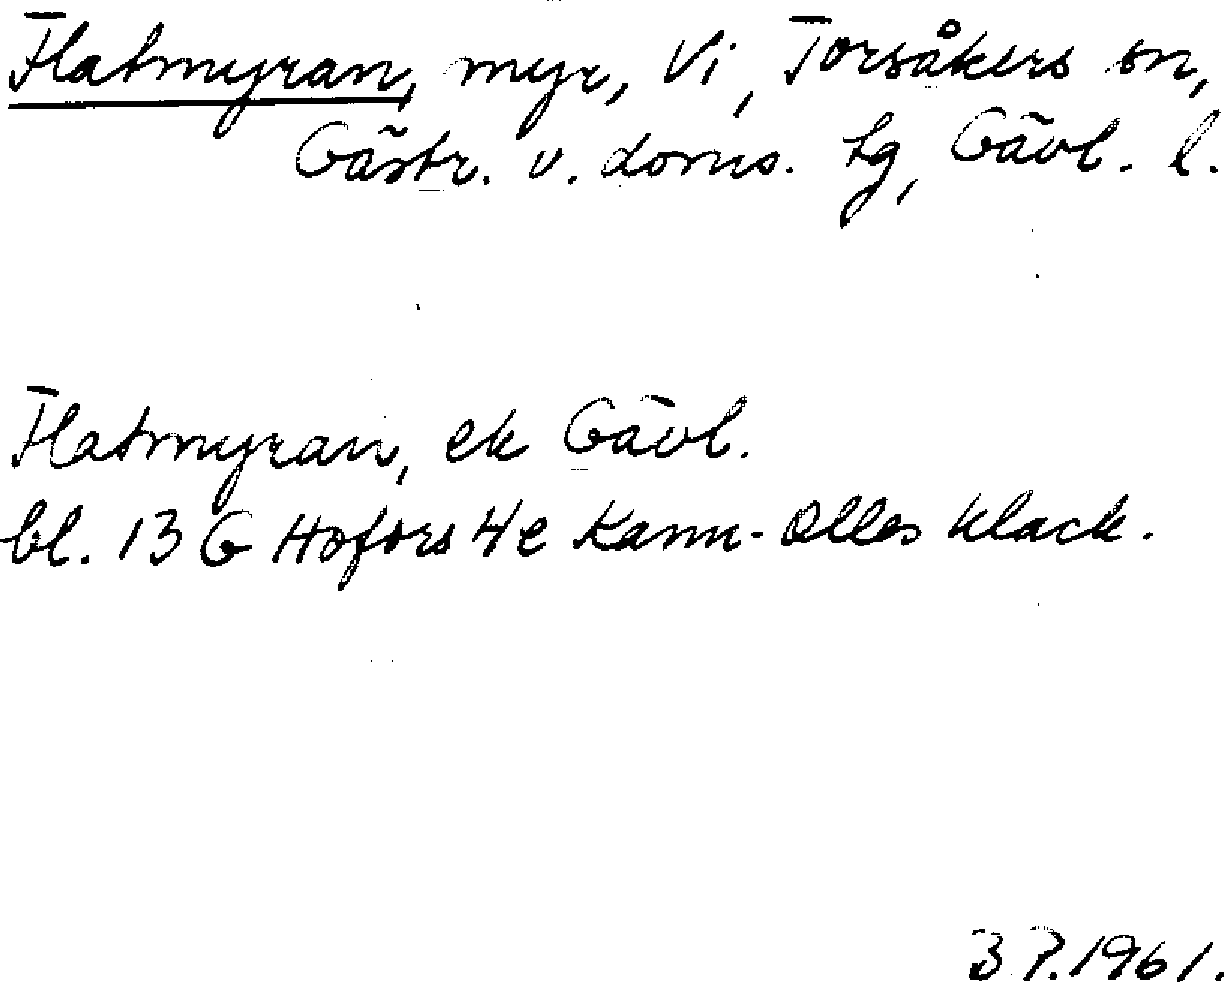 Flatmyran, myr, Vi, Torsåkers sn,
Gästr. v. doms. tg, Gävl. l.
Flatmyran, ek Gävl.
bl. 13 G Hofors 4 e Kann-Olles klack.
B P. 1961.